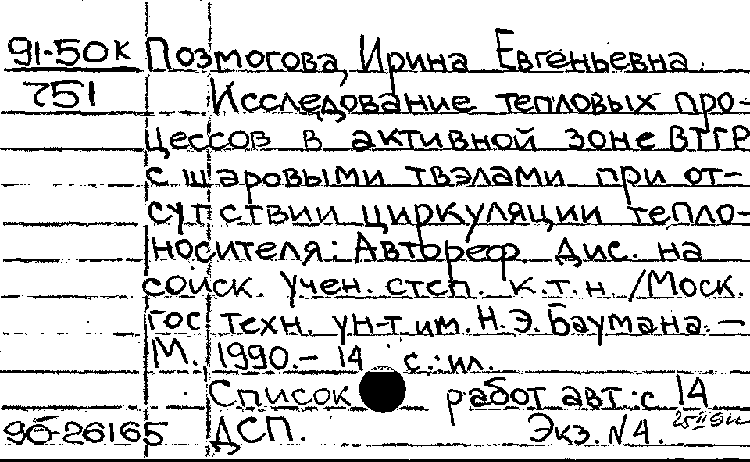 91-50к Позмогова, Ирина Евгеньевна.
751 Исследование тепловых про-
цессов в активной зоне ВТГР
с шаровыми твэлами при от-
сутствии циркуляции тепло-
носителя: Автореф. Дис. на
соиск. учен. степ. к.т.н. /Моск.
гос техн. ун-т им. Н.Э. Баумана. –
М. 1990. – 14 с.: ил.
Список работ авт.: с 14
96-26165 ДСП. Экз. №4.